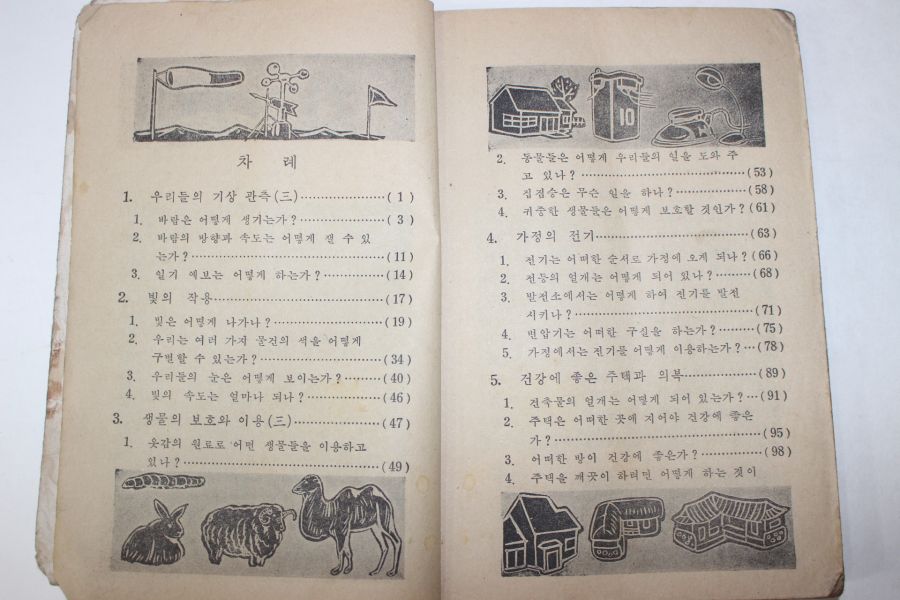 차 례
1. 우리들의 기상 관측(三)··················( 1 )
1. 바람은 어떻게 생기는가?··················( 3 )
2. 바람의 방향과 속도는 어떻게 잴 수 있
는가?··················(11)
3. 일기 예보는 어떻게 하는가?··················(14)
2. 빛의 작용··················(17)
1. 빛은 어떻게 나가나?··················(19)
2. 우리는 여러 가지 물건의 색을 어떻게
구별할 수 있는가?··················(34)
3. 우리들의 눈은 어떻게 보이는가?··········(40)
4. 빛의 속도는 얼마나 되나?··················(46)
3. 생물의 보호와 이용(三)··················(47)
1. 옷감의 원료로 어떤 생물들을 이용하고
있나?··················(49)
10
2. 동물들은 어떻게 우리들의 일을 도와 주
고 있나?··················(53)
3. 집짐승은 무슨 일을 하나?··················(58)
4. 귀중한 생물들은 어떻게 보호할 것인가?(61)
4. 가정의 전기··················(63)
1. 전기는 어떠한 순서로 가정에 오게 되나?(66)
2. 전등의 얼개는 어떻게 되어 있나?········(68)
3. 발전소에서는 어떻게 하여 전기를 발전
시키나?··················(71)
4. 변압기는 어떠한 구실을 하는가?········(75)
5. 가정에서는 전기를 어떻게 이용하는가?···(78)
5. 건강에 좋은 주택과 의복··················(89)
1. 건축물의 얼개는 어떻게 되어 있는가?···(91)
2. 주택은 어떠한 곳에 지어야 건강에 좋은
가?··················(95)
3. 어떠한 방이 건강에 좋은가?··············(98)
4. 주택을 깨끗이 하려면 어떻게 하는 것이